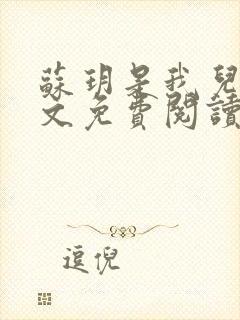 蘇玥是我兒
文免費閱讀
逗倪